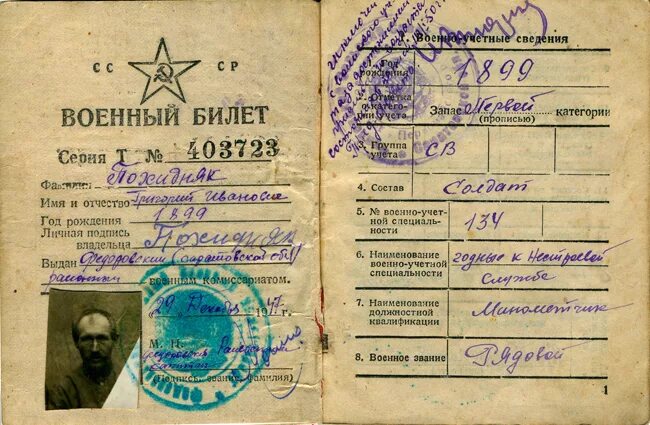 СС СР
ВОЕННЫЙ БИЛЕТ
Серия Т № 403723
Фамилия Похидняк
Имя и отчество Григорий Иванович
Год рождения 1899
Личная подпись
владельца Похидняк
Выдан Федоровским (Саратовской обл)
районным военным комиссариатом.
29 Декабря 1947г.
М. П.
(Подпись, звание, фамилия)
1. Военно-учетные сведения
1. Год рождения 1899
2. Отметка о категории учета Запас Первой категории
(прописью)
3. Группа учета СВ
4. Состав Солдат
5. № военно-учетной специальности 134
6. Наименование военно-учетной специальности годные к Нестроевой Службе
7. Наименование должностной квалификации Минометчик
8. Военное звание Рядовой
1